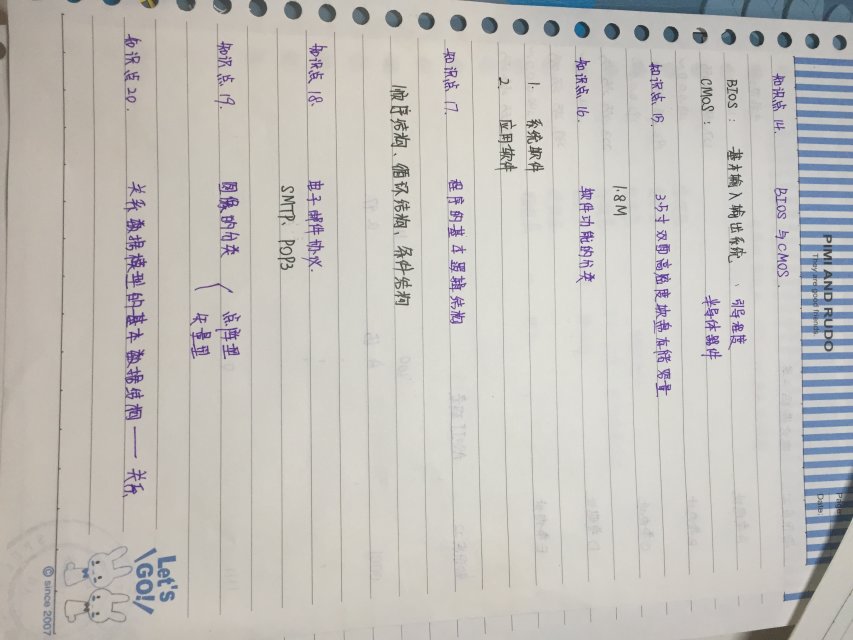 PIMI AND RUDO
They are good friends.
Page:
Date:
知识点14. BIOS与CMOS.
BIOS: 基本输入输出系统、引导程度
CMOS: 半导体器件
知识点15. 3.5寸双面高密度软盘存储容量
1.8M
知识点16. 软件功能的分类
1. 系统软件
2. 应用软件
知识点17. 程序的基本逻辑结构
顺序结构、循环结构、条件结构
知识点18. 电子邮件协议.
SMTP、POP3
知识点19. 图像的分类 { 点阵型
矢量型
知识点20. 关系数据模型的基本数据结构——关系
Let's
GO!
© since 2007